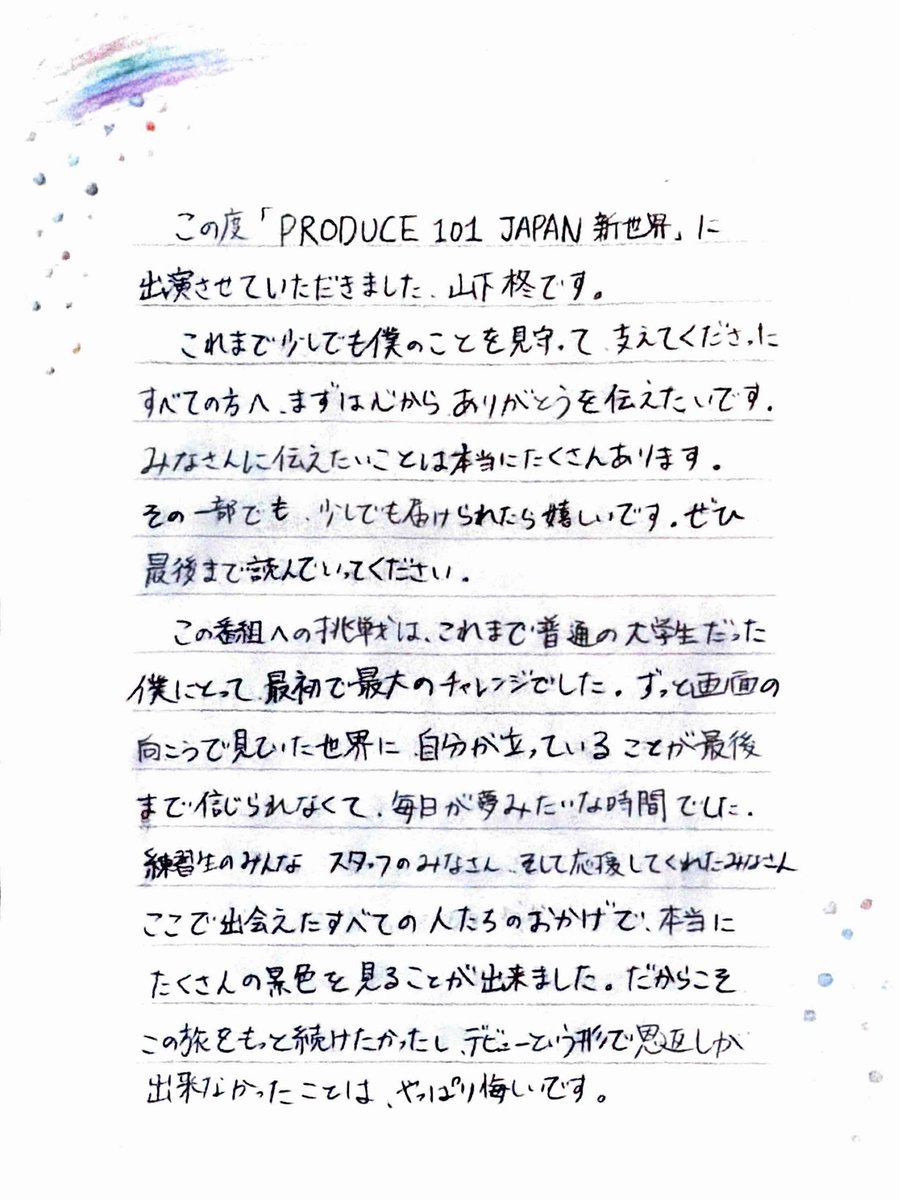 この度「PRODUCE 101 JAPAN 新世界」に
出演させていただきました、山下柊です。
これまで少しでも僕のことを見守って、支えてくださった
すべての方へ、まずは心からありがとうを伝えたいです。
みなさんに伝えたいことは本当にたくさんあります。
その一部でも、少しでも届けられたら嬉しいです。ぜひ
最後まで読んでいってください。
この番組への挑戦は、これまで普通の大学生だった
僕にとって最初で最大のチャレンジでした。ずっと画面の
向こうで見ていた世界に自分が立っていることが最後
まで信じられなくて、毎日が夢みたいな時間でした。
練習生のみんな スタッフのみなさん、そして応援してくれたみなさん
ここで出会えたすべての人たちのおかげで、本当に
たくさんの景色を見ることが出来ました。だからこそ
この旅をもっと続けたかったし、デビューという形で恩返しが
出来なかったことは、やっぱり悔しいです。